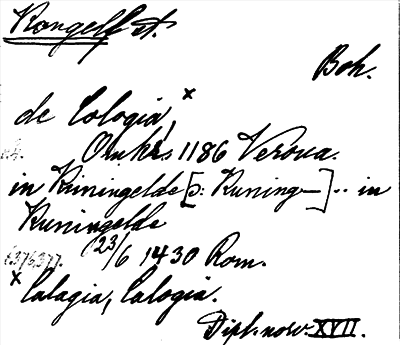 Kongelf st.
Boh.
de Cologia, x
Omkr. 1186 Verona.
in Kuningelde [ɔ: Kuning—] ·· in
Kuningelde
23/6 1430 Rom.
x Calagia, Calogia.
Dipl. norv. XVII.